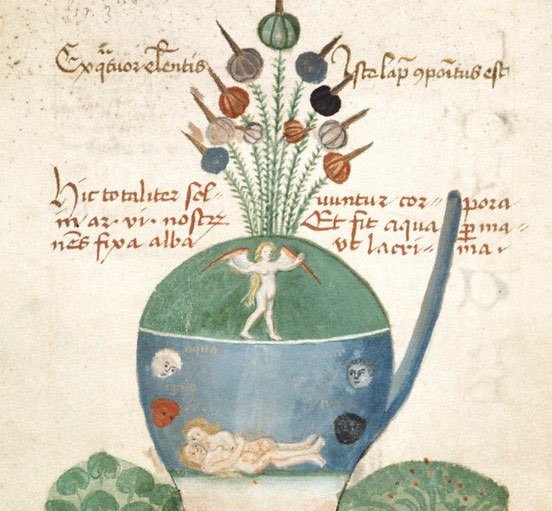 Ex qᷓtuor elēntis Iste lap̄ ꝯpoītus est
Hic totaliter sol= uuntur cor= pora
in ar· vi· nostrꝝ Et fit aqua ꝑma=
nēs fixa alba vt lacri= ma·
aqua